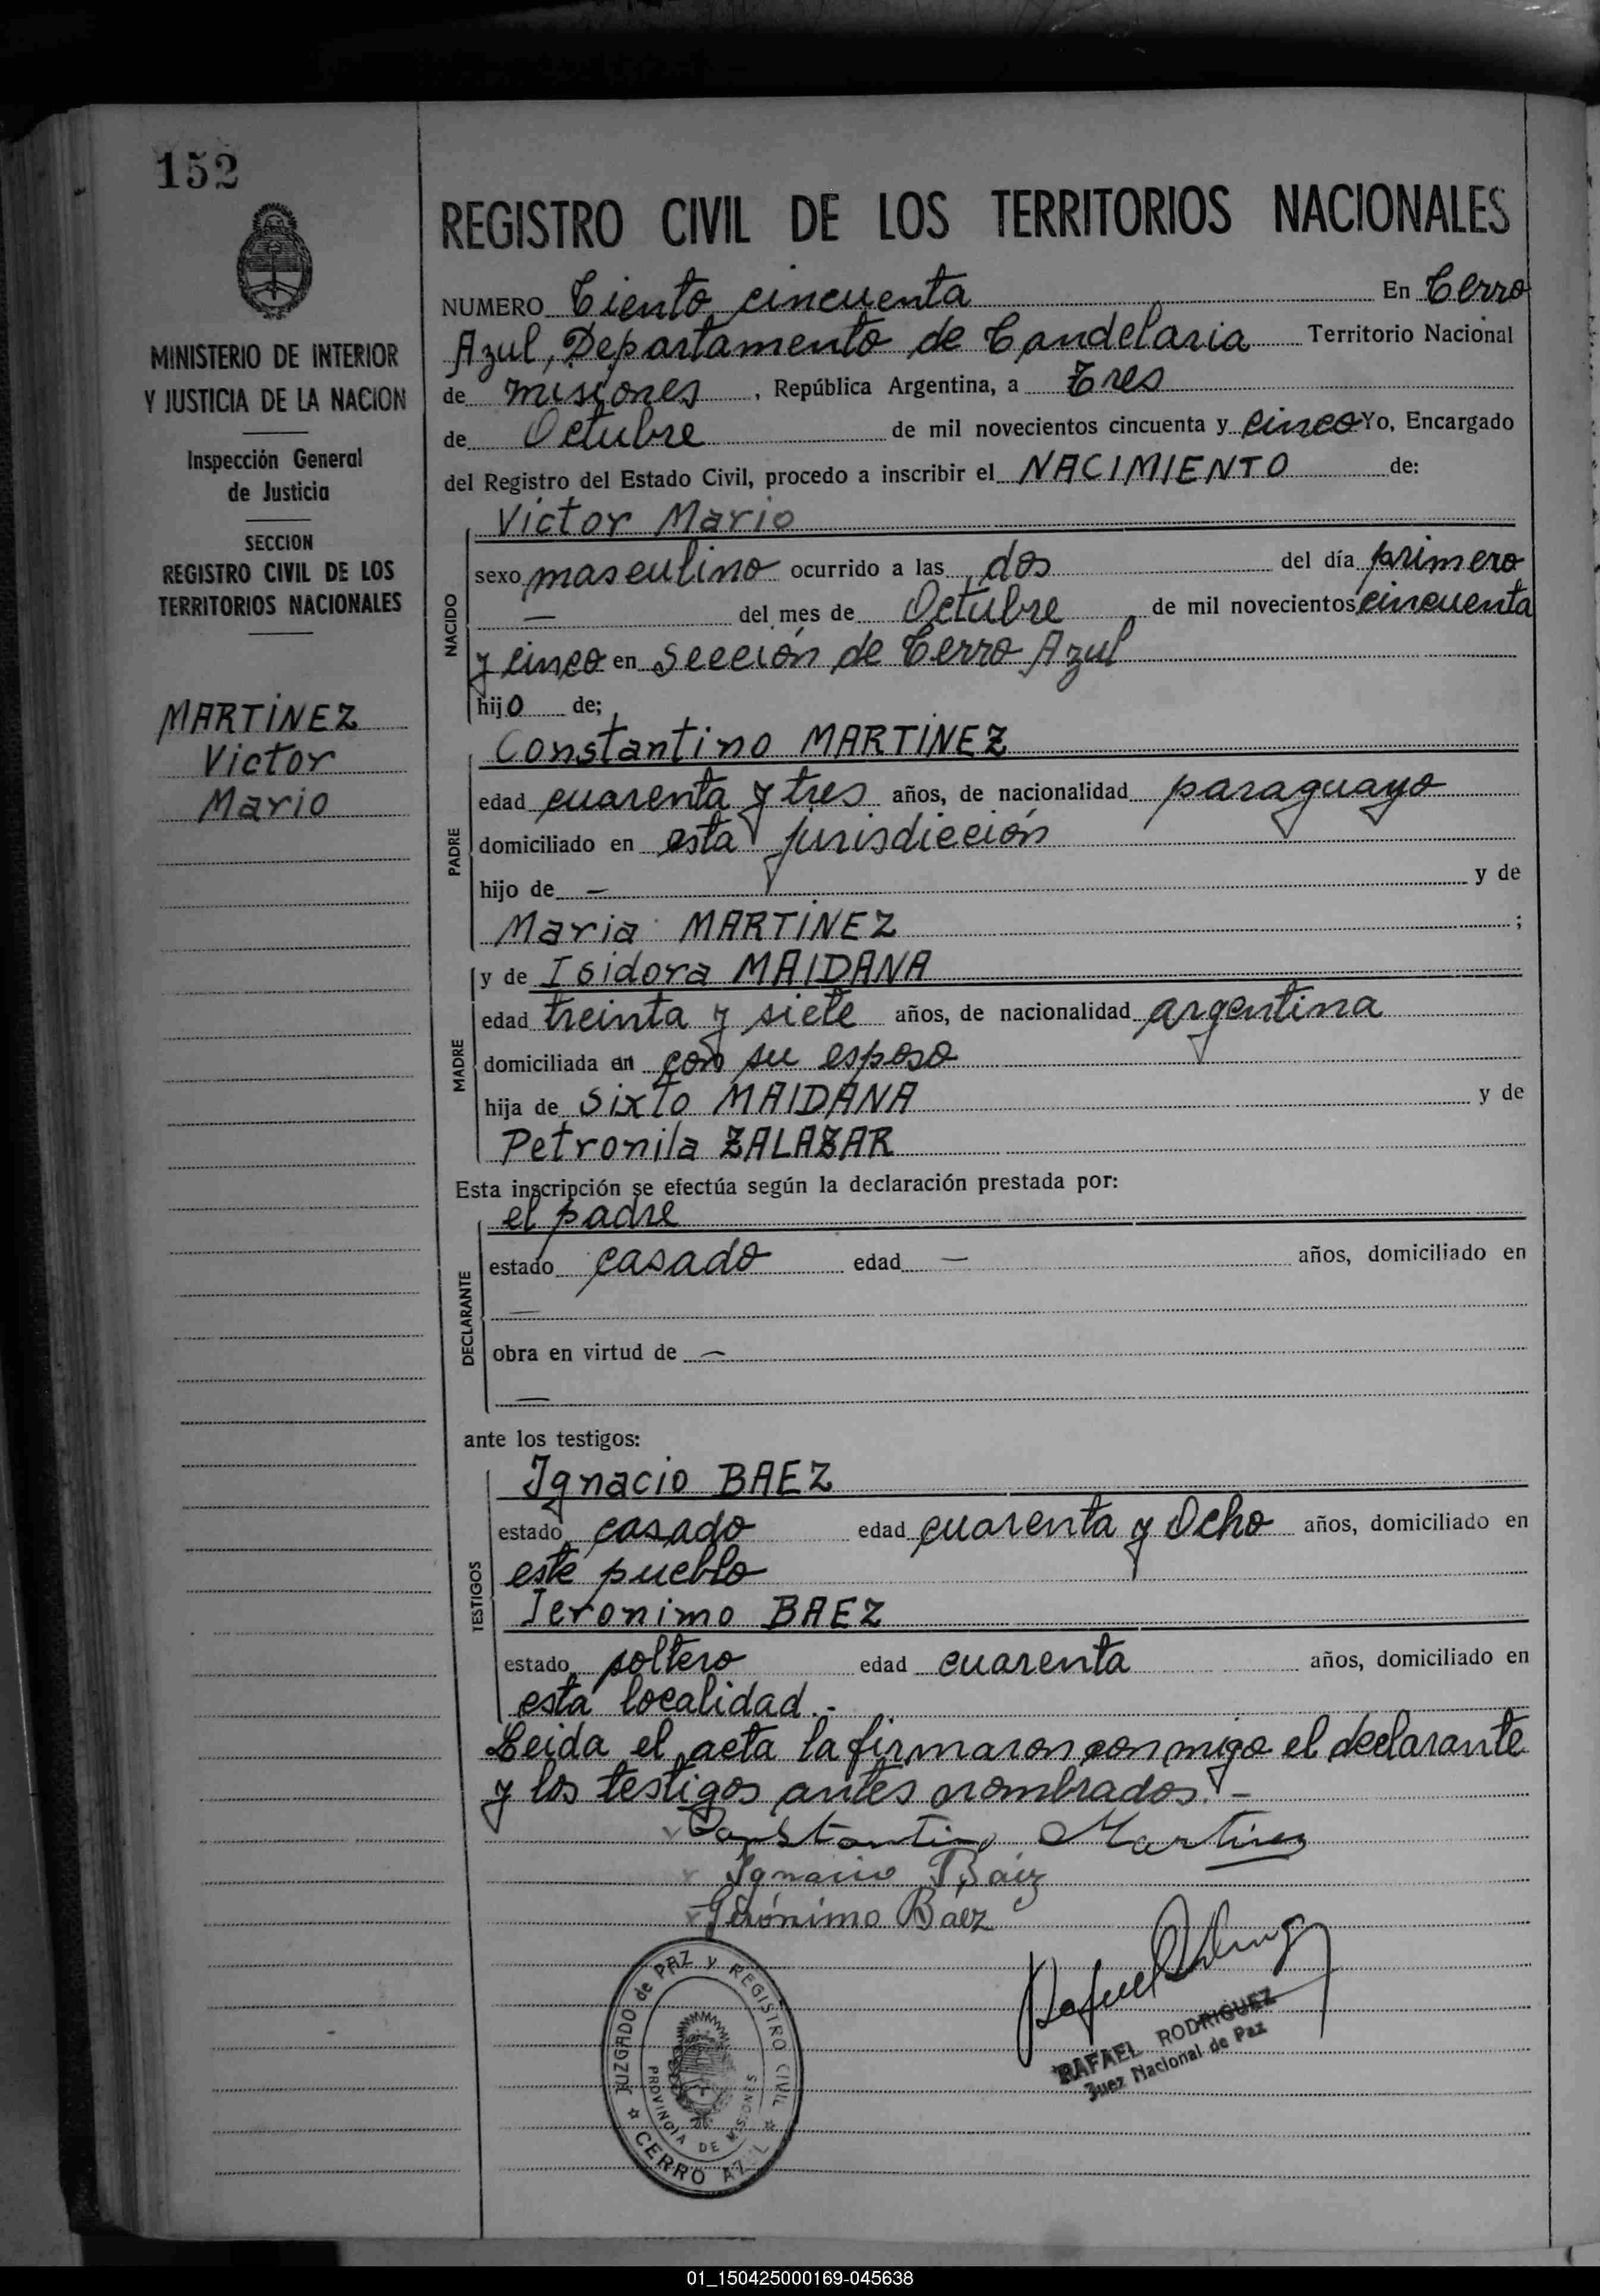 152
MINISTERIO DE INTERIOR
Y JUSTICIA DE LA NACION
Inspección General
de Justicia
SECCION
REGISTRO CIVIL DE LOS
TERRITORIOS NACIONALES
MARTINEZ
Victor
Mario
REGISTRO CIVIL DE LOS TERRITORIOS NACIONALES
NUMERO Ciento cincuenta En Cerro
Azul, Departamento de Candelaria Territorio Nacional
de misiones, República Argentina, a Tres
de Octubre de mil novecientos cincuenta y cinco Yo, Encargado
del Registro del Estado Civil, procedo a inscribir el NACIMIENTO de:
Victor Mario
NACIDO
sexo masculino ocurrido a las dos del día primero
— del mes de Octubre de mil novecientos cincuenta
y cinco en Sección de Cerro Azul
hijo de;
Constantino MARTINEZ
PADRE
edad cuarenta y tres años, de nacionalidad paraguayo
domiciliado en esta jurisdicción
hijo de — y de
Maria MARTINEZ ;
y de Isidora MAIDANA
MADRE
edad treinta y siete años, de nacionalidad argentina
domiciliada en con su esposo
hija de Sixto MAIDANA y de
Petronila ZALAZAR
Esta inscripción se efectúa según la declaración prestada por:
el padre
DECLARANTE
estado casado edad — años, domiciliado en
—
obra en virtud de —
—
ante los testigos:
Ignacio BAEZ
TESTIGOS
estado casado edad cuarenta y Ocho años, domiciliado en
este pueblo
Jeronimo BAEZ
estado soltero edad cuarenta años, domiciliado en
esta localidad.-
Leida el acta la firmaron conmigo el declarante
y los testigos antes nombrados.-
Constantino Martinez
Ignacio Báez
Gerónimo Baez
JUZGADO de PAZ y REGISTRO CIVIL
PROVINCIA DE MISIONES
CERRO AZUL
RAFAEL RODRIGUEZ
Juez Nacional de Paz
01_150425000169-045638